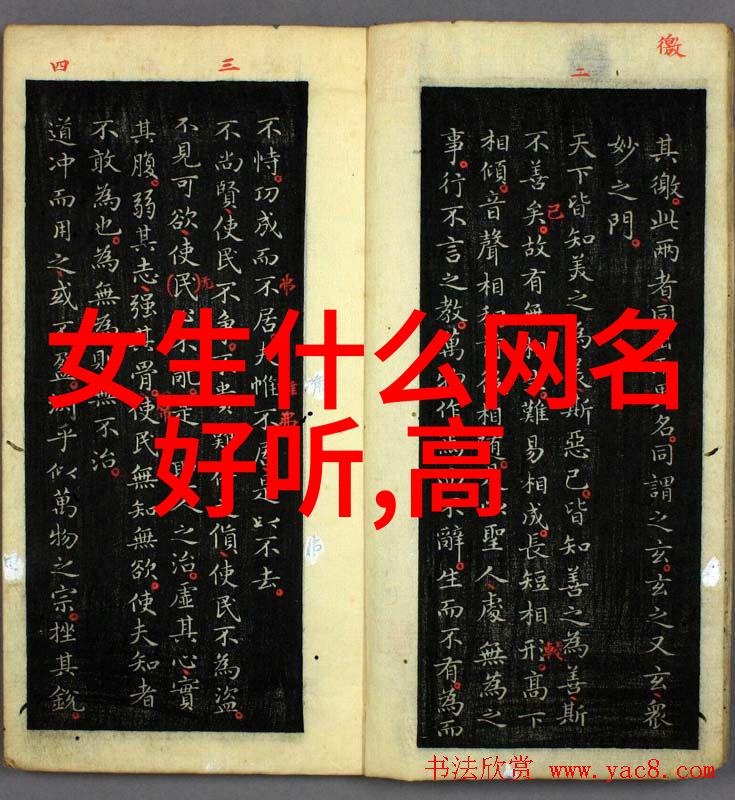 女生什么网名
好听,高
徼
二
其徼。此兩者同名。同謂之玄。玄之又玄、衆
妙之門。
天下皆知美之為美斯惡已。皆知善之為善斯
不善矣。故有無難易相成。長短相形。高下
已
較
相傾。音聲相和相隨。聖人處無為之
事。行不言之教。萬作焉不辭。生而不有。為而
三
四
不恃。功成而不居。夫惟不居是以不去。
弗
唯
弗
不尚賢、使民不爭。不貴使民不為盜。
不見可欲、使民不亂。是之治。虛其心、實
无
其腹。弱其志、强其骨。使民無知無欲。使夫知者
不敢為也。為無為則無不治。
道冲而用之、或不盈。淵乎似萬物之宗。挫其銳。
书法欣赏 www.yac8.com